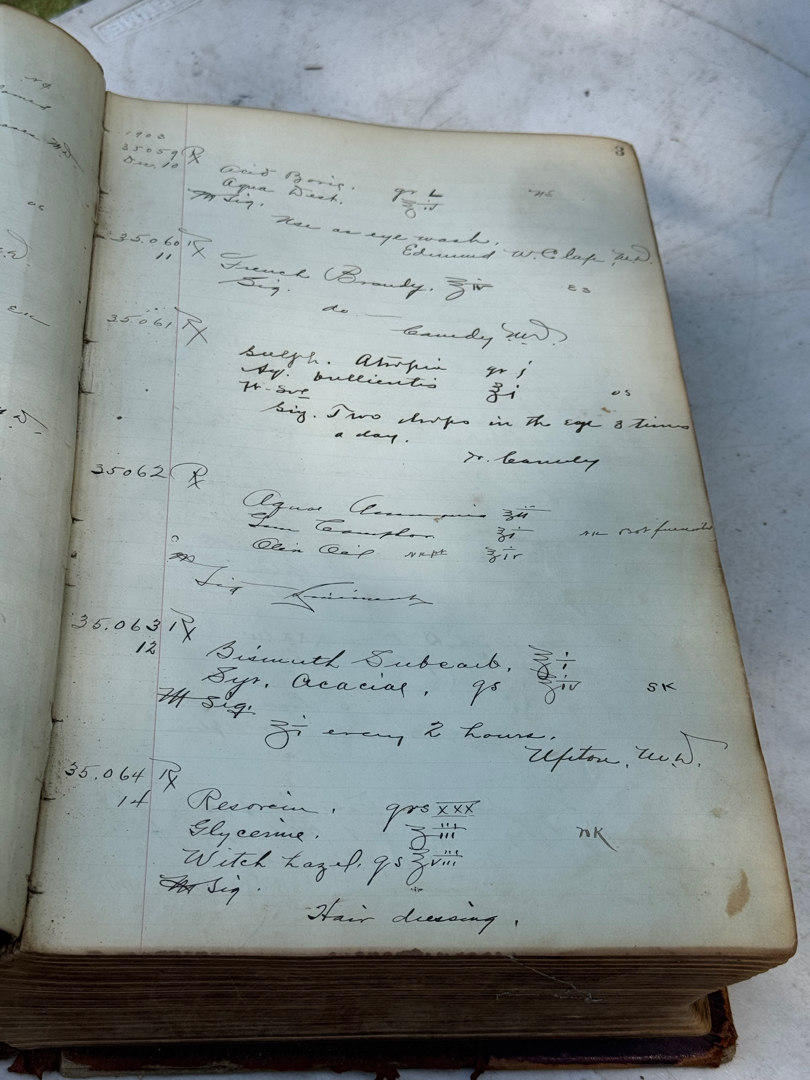 3
1903
35059 Rx Acid Boric. gr L
Dec. 10 Aqua Dest. ℥iv
M Sig.
Use as eye wash.
Edmund W. Clap M.D.
35.060 Rx
11 French Brandy. ℥iv
Sig.
do
Canedy M.D.
35.061 Rx
Sulph. Atropia gr j
Aq. bullientis ℥i os
ft. Sol
Sig. Two drops in the eye 3 times
a day.
Dr. Canedy
35062 Rx
Aqua Ammonia ℥ii
Gum Camphor ℥i not
Olive Oil ℥iv
M
Sig Liniment
35.063 Rx
12 Bismuth Subcarb. ℥i
Syr. Acaciae, qs ℥iv SK
M Sig.
ʒi every 2 hours.
Upton, M.D.
35.064 Rx
14 Resorcin. grs XXX
Glycerine. ʒiii NK
Witch hazel, qs ℥viii
M Sig.
Hair dressing.